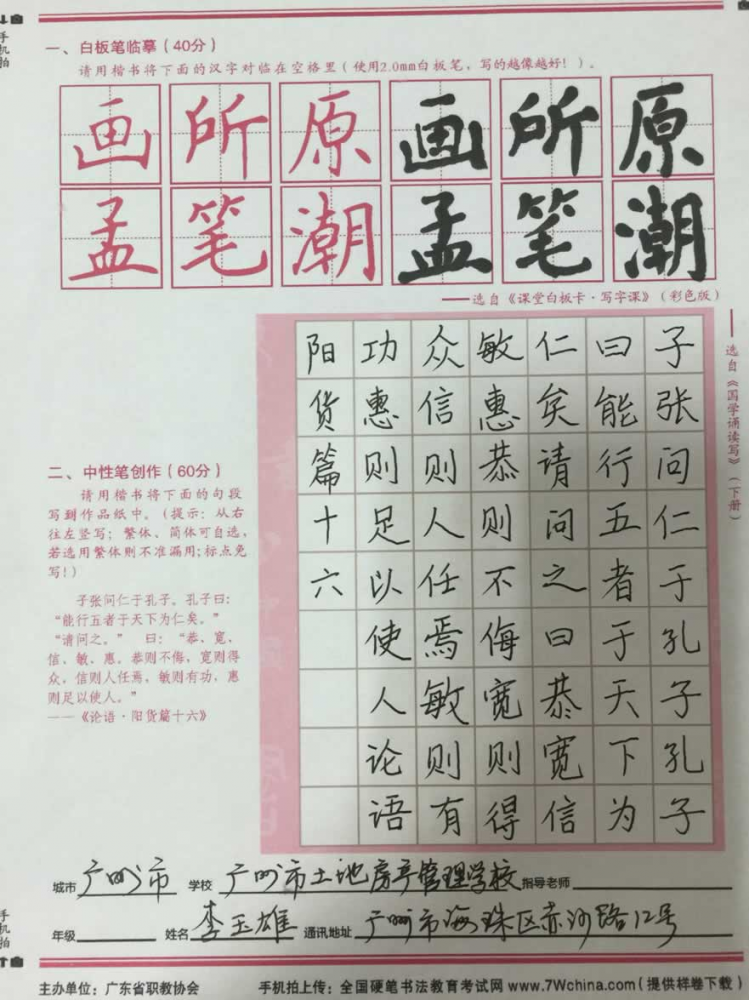 手机拍
一、白板笔临摹（40分）
请用楷书将下面的汉字对临在空格里（使用2.0mm白板笔，写的越像越好！）。
画所原画所原
孟笔潮孟笔潮
——选自《课堂白板卡·写字课》（彩色版）
——选自《国学诵读写》（下册）
子张问仁于孔子孔子
曰能行五者于天下为
仁矣请问之曰恭宽信
敏惠恭则不侮宽则得
众信则人任焉敏则有
功惠则足以使人论语
阳货篇十六
二、中性笔创作（60分）
请用楷书将下面的句段
写到作品纸中。（提示：从右
往左竖写；繁体、简体可自选，
若选用繁体则不准漏用；标点免
写！）
子张问仁于孔子。孔子曰：
“能行五者于天下为仁矣。”
“请问之。” 曰：“恭、宽、
信、敏、惠。恭则不侮，宽则得
众，信则人任焉，敏则有功，惠
则足以使人。”
——《论语·阳货篇十六》
城市 广州市 学校 广州市土地房产管理学校 指导老师
年级 姓名 李玉雄 通讯地址 广州市海珠区赤沙路12号
手机拍
主办单位：广东省职教协会 手机拍上传：全国硬笔书法教育考试网 www.7Wchina.com（提供样卷下载）